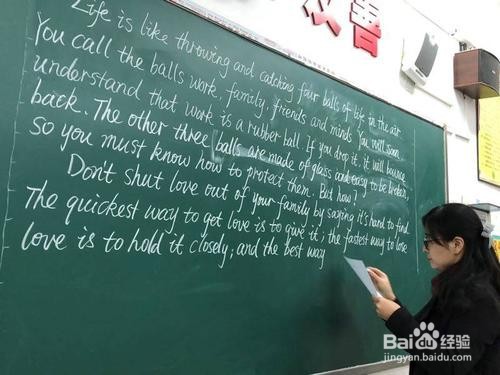 Life is like throwing and catching four balls of life in the air.
You call the balls work, family, friends and minds. You will soon
understand that work is a rubber ball. If you drop it, it will bounce
back. The other three balls are made of glass and easy to be broken,
so you must know how to protect them. But how?
Don't shut love out of your family by saying it's hard to find.
The quickest way to get love is to give it; the fastest way to lose
love is to hold it closely; and the best way
Baidu 经验
jingyan.baidu.com